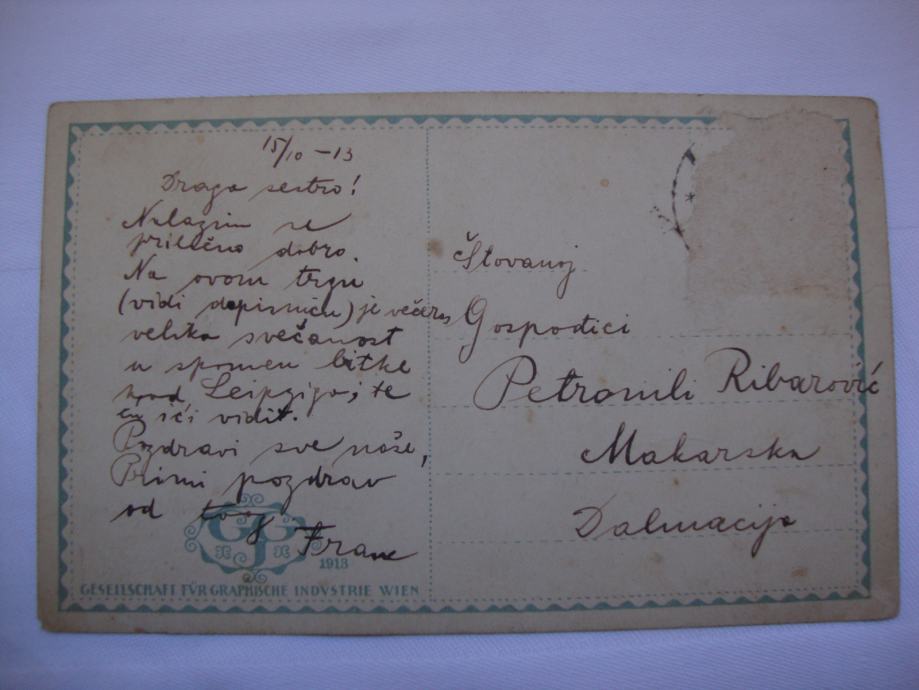 15/10 - 13
Draga sestro!
Nalazim se
prilično dobro.
Na ovom trgu
(vidi dopisnicu) je večeras
velika svečanost
u spomen bitke
kod Leipziga, te
ću ići vidit.
Pozdravi sve naše,
Primi pozdrav
od tvog
Frane
GJG
1913
GESELLSCHAFT FÜR GRAPHISCHE INDVSTRIE WIEN
Štovanoj
Gospodici
Petronili Ribarović
Makarska
Dalmacija